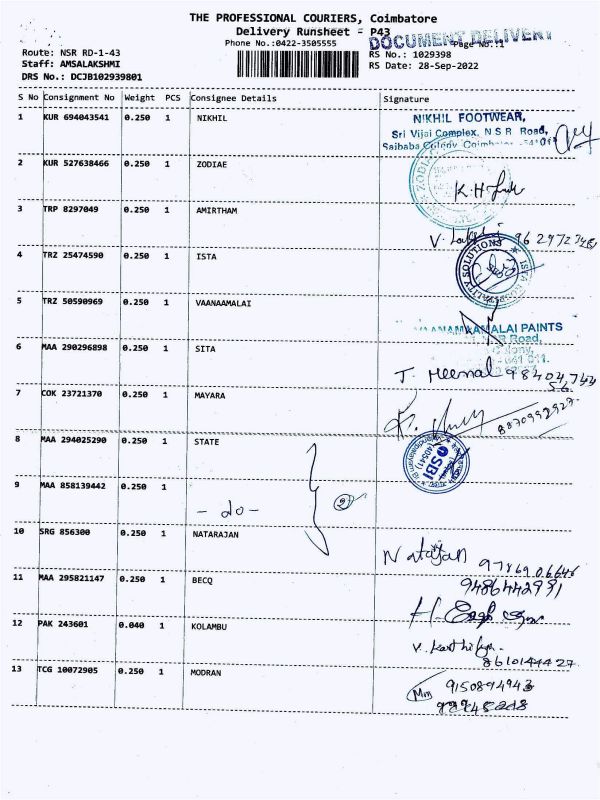 THE PROFESSIONAL COURIERS, Coimbatore
Delivery Runsheet - P43
Phone No.:0422-3505555
DOCUMENT DELIVERY
Page No.:1
Route: NSR RD-1-43
Staff: AMSALAKSHMI
DRS No.: DCJB102939801
RS No.: 1029398
RS Date: 28-Sep-2022
S No Consignment No Weight PCS Consignee Details Signature
1 KUR 694043541 0.250 1 NIKHIL
NIKHIL FOOTWEAR,
Sri Vijai Complex, N.S.R. Road,
Saibaba Colony, Coimbatore
2 KUR 527638466 0.250 1 ZODIAE
K.H
3 TRP 8297049 0.250 1 AMIRTHAM
V.
4 TRZ 25474590 0.250 1 ISTA
5 TRZ 50590969 0.250 1 VAANAAMALAI
VAANAMAAMALAI PAINTS
Road,
6 MAA 290296898 0.250 1 SITA
T. Meenal
7 COK 23721370 0.250 1 MAYARA
8870992927
8 MAA 294025290 0.250 1 STATE
SBI
(40541)
9 MAA 858139442 0.250 1
- do -
10 SRG 856300 0.250 1 NATARAJAN
Natarjan 9786906646
11 MAA 295821147 0.250 1 BECQ
9486442991
12 PAK 243601 0.040 1 KOLAMBU
V.
8610144427
13 TCG 10072905 0.250 1 MODRAN
9150894943